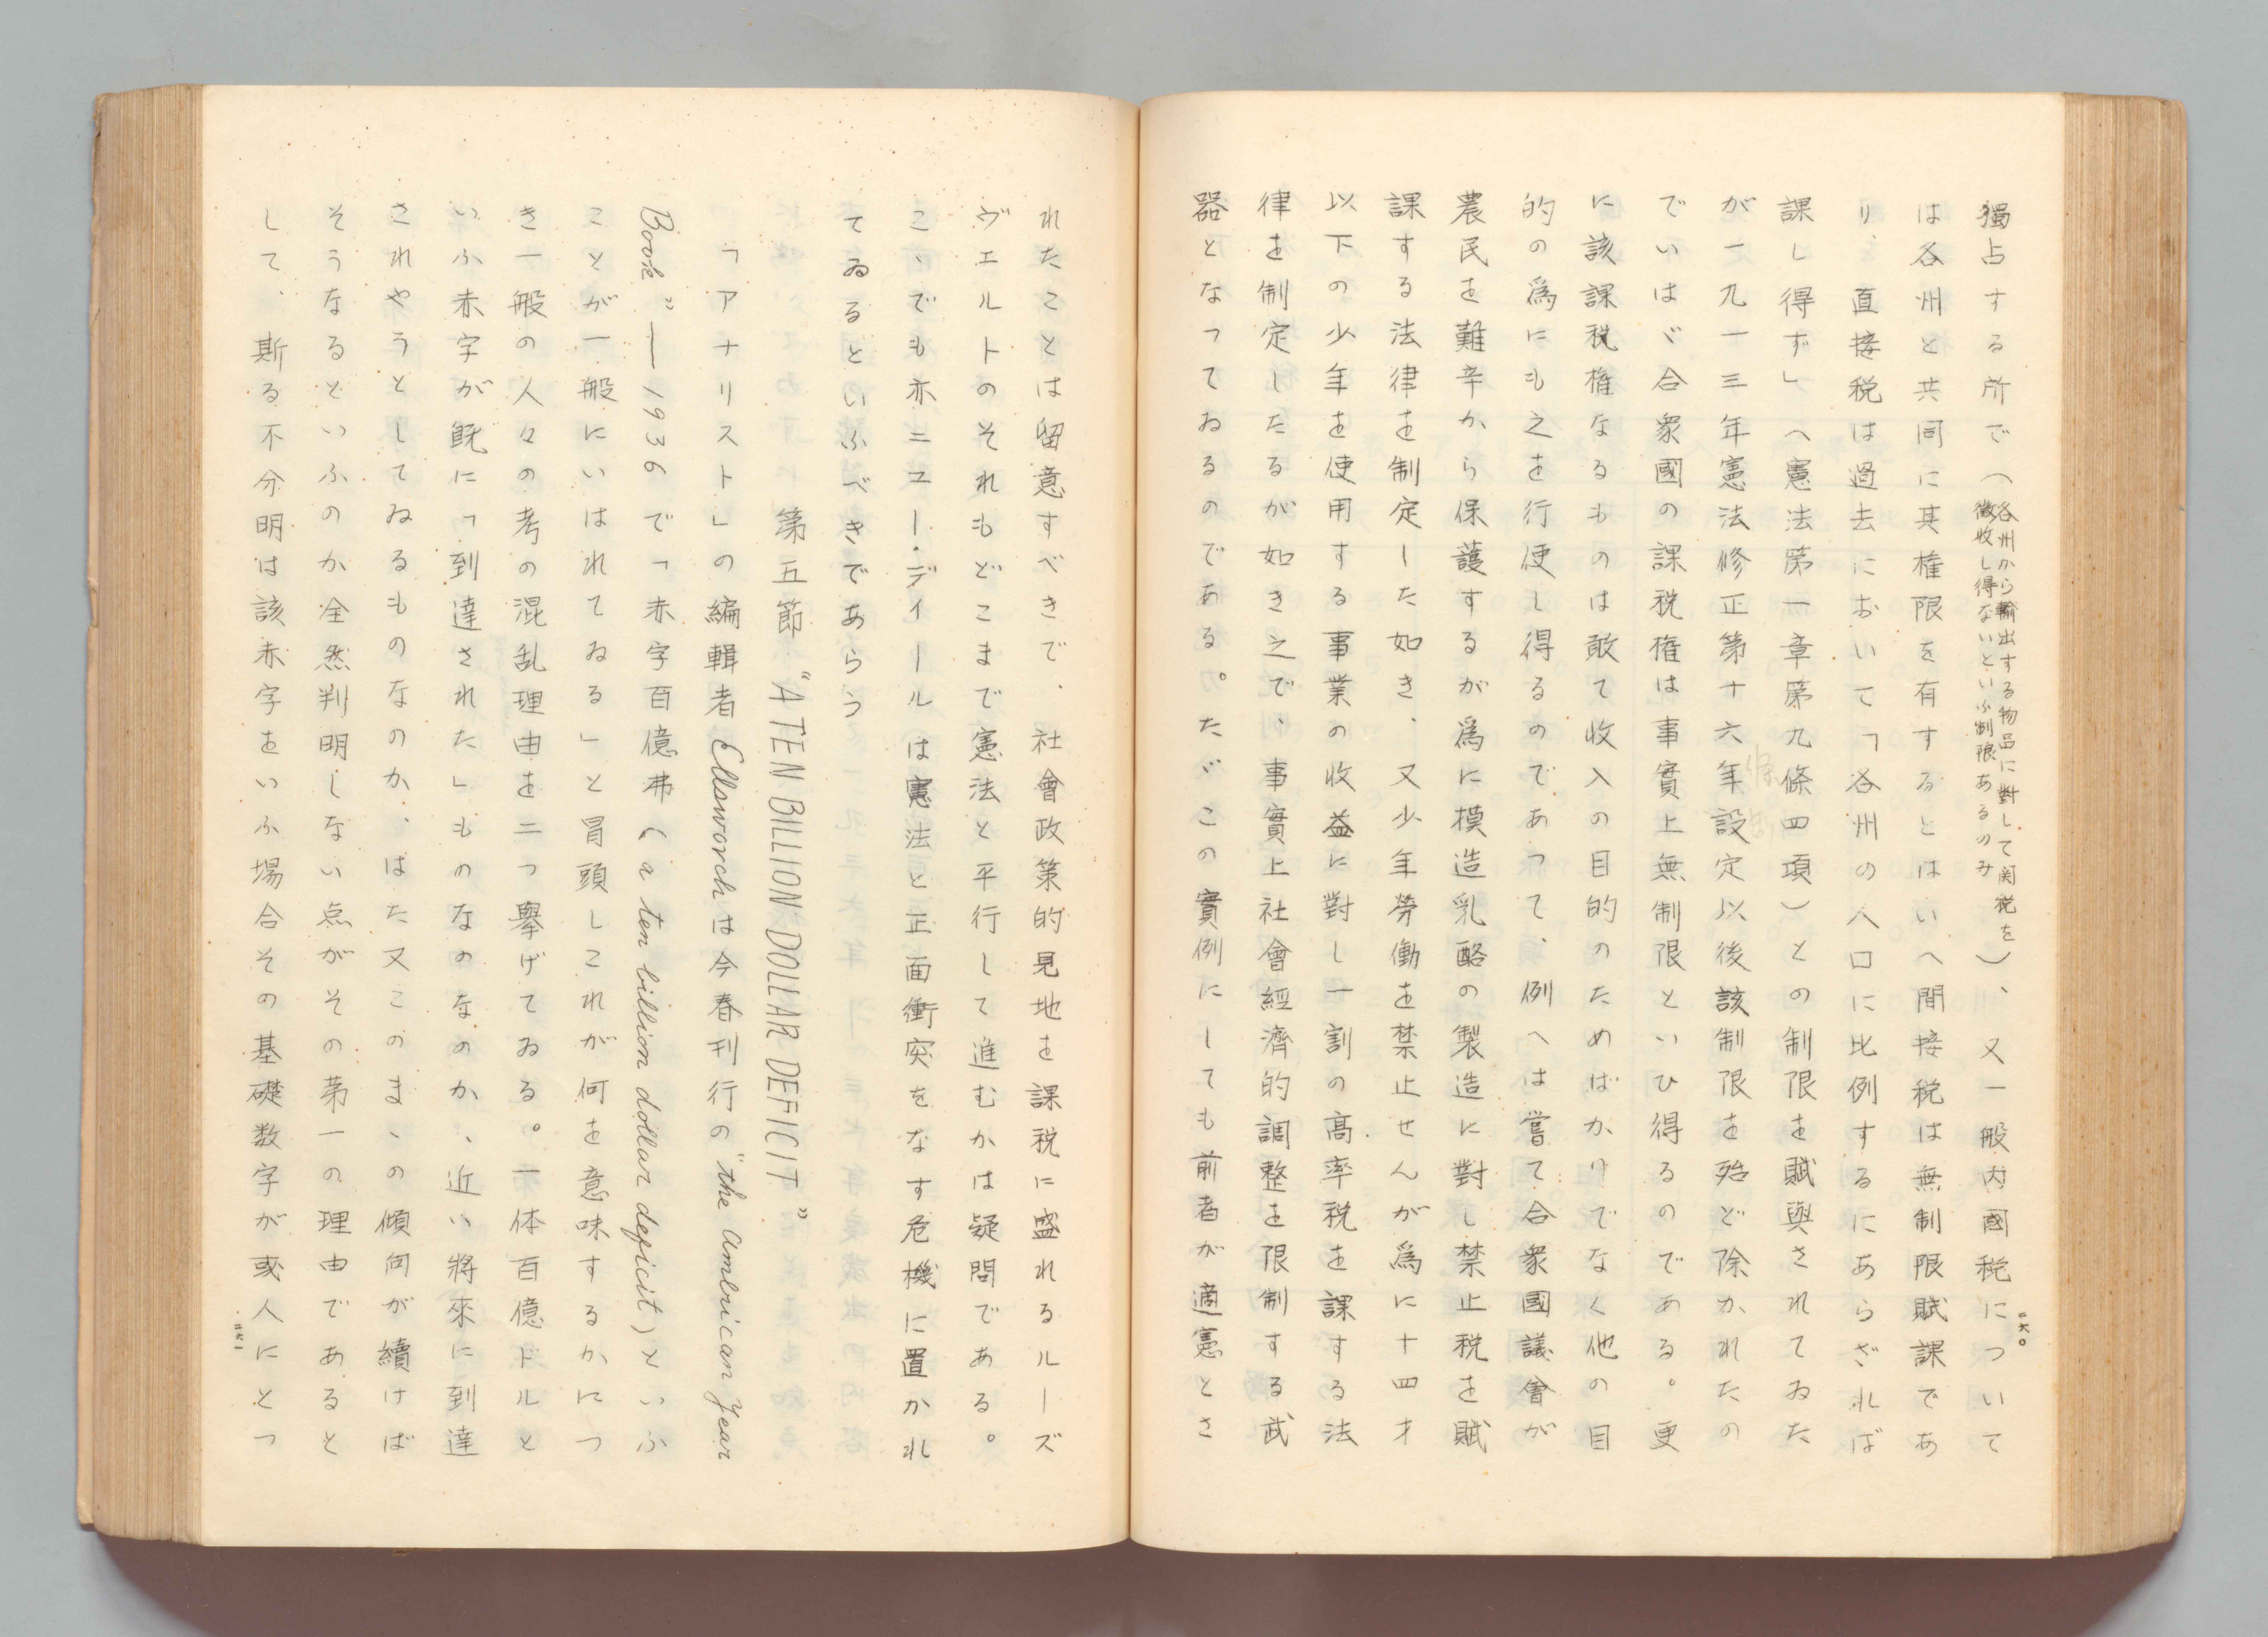 獨占する所で（各州から輸出する物品に對して関税を徴收し得ないといふ制限あるのみ）、又一般内國税について
は各州と共同に其権限を有するとはいへ間接税は無制限賦課であ
り、直接税は過去において「各州の人口に比例するにあらざれば
課し得ず」（憲法第一章第九條四項）との制限を賦與されてゐた
が一九一三年憲法修正第十六年設定以後該制限を殆ど除かれたの
でいはゞ合衆國の課税権は事實上無制限といひ得るのである。更
に該課税権なるものは敢て收入の目的のためばかりでなく他の目
的の爲にも之を行使し得るのであつて、例へは嘗て合衆國議會が
農民を難辛から保護するが爲に模造乳酪の製造に對し禁止税を賦
課する法律を制定した如き、又少年勞働を禁止せんが爲に十四才
以下の少年を使用する事業の收益に對し一割の高率税を課する法
律を制定したるが如き之で、事實上社會經濟的調整を限制する武
器となつてゐるのである。たゞこの實例にしても前者が適憲とさ
二六〇
れたことは留意すべきで、社會政策的見地を課税に盛れるルーズ
ヴェルトのそれもどこまで憲法と平行して進むかは疑問である。
こゝでも亦ニユー・デイールは憲法と正面衝突をなす危機に置かれ
てゐるといふべきであらう
第五節 “A TEN BILLION DOLLAR DEFICIT”
「アナリスト」の編輯者 Ellsworch は今春刊行の “the American Year
Book”――1936 で「赤字百億弗（a ten billion dollar deficit）といふ
ことが一般にいはれてゐる」と冒頭しこれが何を意味するかにつ
き一般の人々の考の混乱理由を二つ擧げてゐる。一体百億ドルと
いふ赤字が既に「到達された」ものなのなのか、近い將來に到達
されやうとしてゐるものなのか、はた又このまゝの傾向が續けば
そうなるといふのか全然判明しない点がその第一の理由であると
して、斯る不分明は該赤字をいふ場合その基礎数字が或人にとつ
二六一